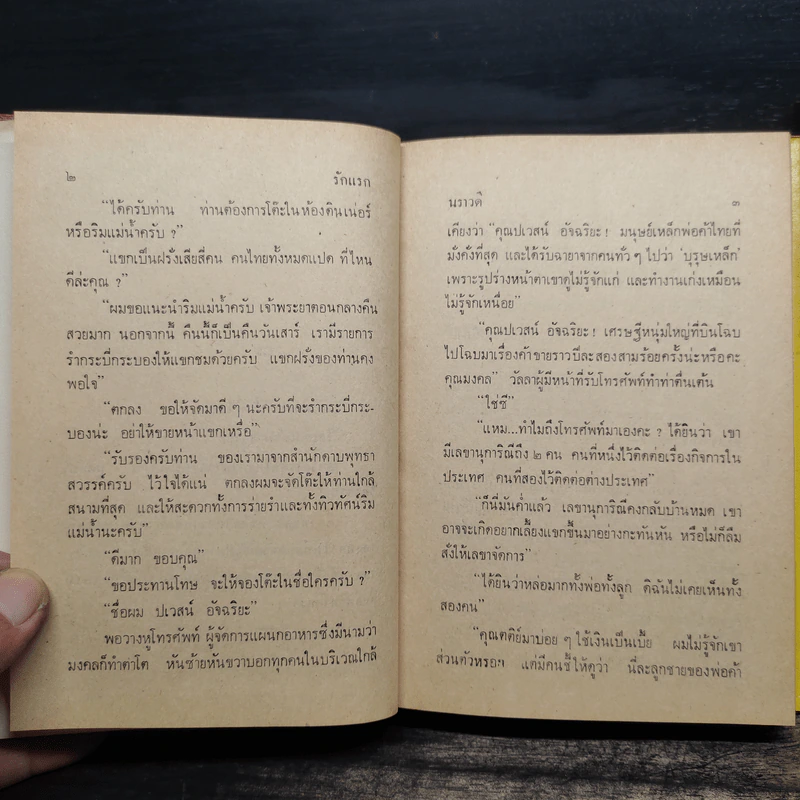 ๒ รักแรก
“ได้ครับท่าน ท่านต้องการโต๊ะในห้องดินเน่อร์
หรือริมแม่น้ำครับ ?”
“แขกเป็นฝรั่งเสียสี่คน คนไทยทั้งหมดแปด ที่ไหน
ดีล่ะคุณ ?”
“ผมขอแนะนำริมแม่น้ำครับ เจ้าพระยาตอนกลางคืน
สวยมาก นอกจากนี้ คืนนี้ก็เป็นคืนวันเสาร์ เรามีรายการ
รำกระบี่กระบองให้แขกชมด้วยครับ แขกฝรั่งของท่านคง
พอใจ”
“ตกลง ขอให้จัดมาดี ๆ นะครับที่จะรำกระบี่กระ-
บองน่ะ อย่าให้ขายหน้าแขกเหรื่อ”
“รับรองครับท่าน ของเรามาจากสำนักดาบพุทธา
สวรรค์ครับ ไว้ใจได้แน่ ตกลงผมจะจัดโต๊ะให้ท่านใกล้
สนามที่สุด และให้สะดวกทั้งการร่ายรำและทั้งทิวทัศน์ริม
แม่น้ำนะครับ”
“ดีมาก ขอบคุณ”
“ขอประทานโทษ จะให้จองโต๊ะในชื่อใครครับ ?”
“ชื่อผม ปเวสน์ อัจฉริยะ”
พอวางหูโทรศัพท์ ผู้จัดการแผนกอาหารซึ่งมีนามว่า
มงคลก็ทำตาโต หันซ้ายหันขวาบอกทุกคนในบริเวณใกล้
นราวดี ๓
เคียงว่า “คุณปเวสน์ อัจฉริยะ ! มนุษย์เหล็กพ่อค้าไทยที่
มั่งคั่งที่สุด และได้รับฉายาจากคนทั่ว ๆ ไปว่า ‘บุรุษเหล็ก’
เพราะรูปร่างหน้าตาเขาดูไม่รู้จักแก่ และทำงานเก่งเหมือน
ไม่รู้จักเหนื่อย”
“คุณปเวสน์ อัจฉริยะ ! เศรษฐีหนุ่มใหญ่ที่บินโฉบ
ไปโฉบมาเรื่องค้าขายราวปีละสองสามร้อยครั้งน่ะหรือคะ
คุณมงคล” วัลลาผู้มีหน้าที่รับโทรศัพท์ทำท่าตื่นเต้น
“ใช่ซี”
“แหม...ทำไมถึงโทรศัพท์มาเองคะ ? ได้ยินว่า เขา
มีเลขานุการิณีถึง ๒ คน คนที่หนึ่งไว้ติดต่อเรื่องกิจการใน
ประเทศ คนที่สองไว้ติดต่อต่างประเทศ”
“ก็นี่มันค่ำแล้ว เลขานุการิณีคงกลับบ้านหมด เขา
อาจจะเกิดอยากเลี้ยงแขกขึ้นมาอย่างกะทันหัน หรือไม่ก็ลืม
สั่งให้เลขาจัดการ”
“ได้ยินว่าหล่อมากทั้งพ่อทั้งลูก ดิฉันไม่เคยเห็นทั้ง
สองคน”
“คุณตติย์มาบ่อย ๆ ใช้เงินเป็นเบี้ย ผมไม่รู้จักเขา
ส่วนตัวหรอก แต่มีคนชี้ให้ดูว่า นี่ละลูกชายของพ่อค้า